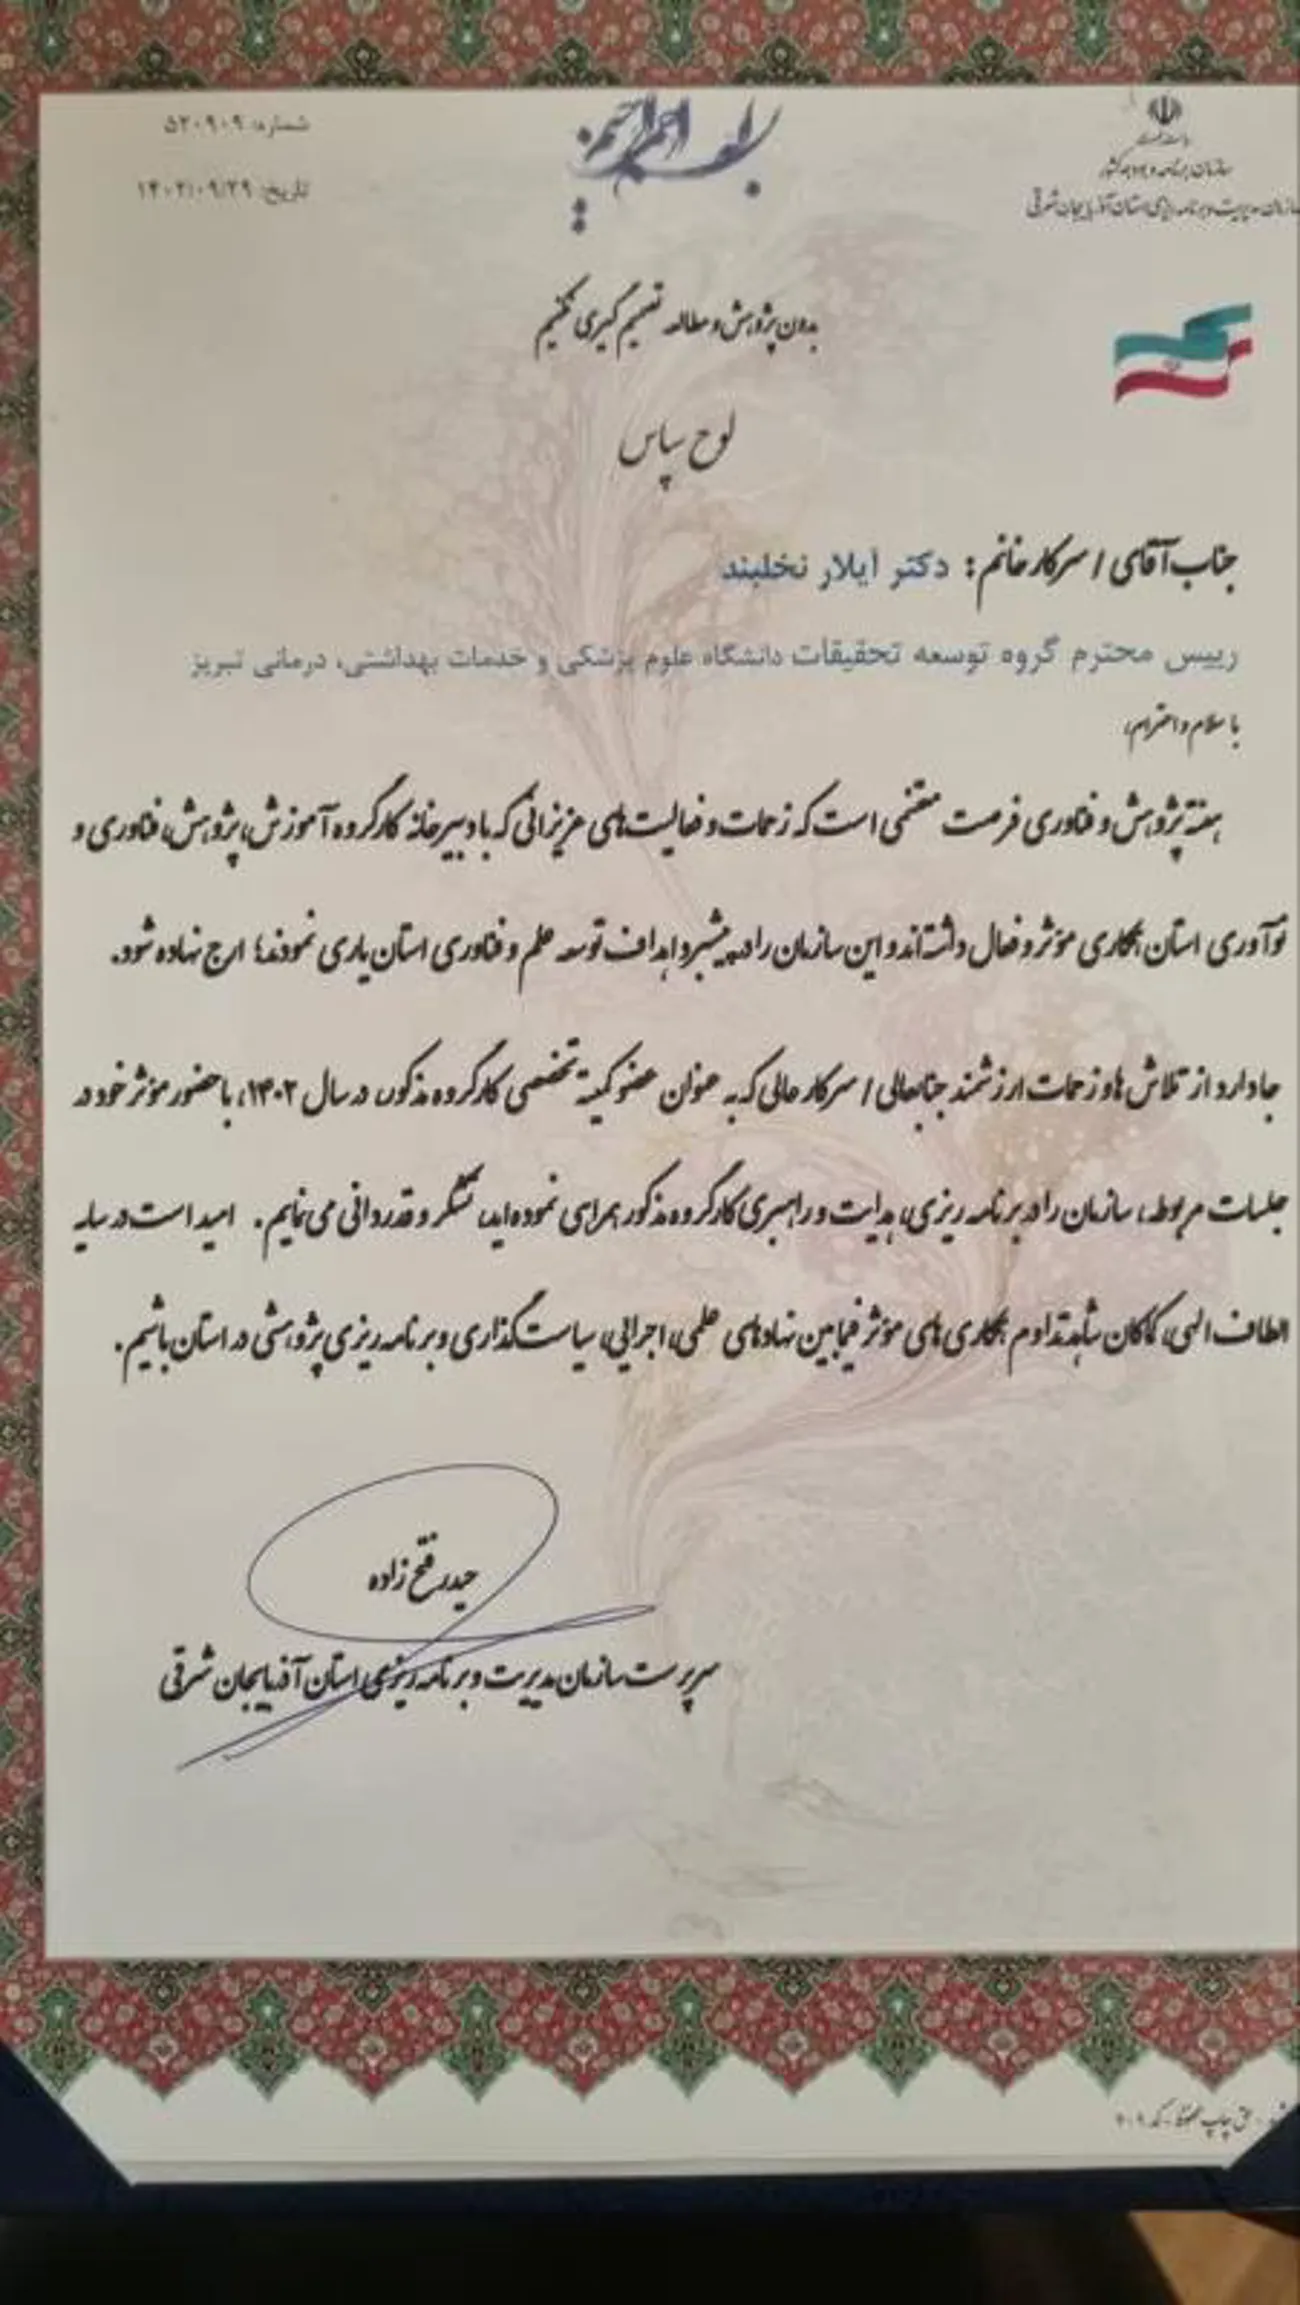 بسم الله الرحمن الرحیم
ریاست جمهوری
سازمان برنامه و بودجه کشور
سازمان مدیریت و برنامه ریزی استان آذربایجان شرقی
شماره: ۵۲۰۹۰۹
تاریخ: ۱۴۰۲/۰۹/۲۹
بدون پژوهش و مطالعه تصمیم گیری نکنیم
لوح سپاس
جناب آقای / سرکار خانم: دکتر آیلار نخلبند
رییس محترم گروه توسعه تحقیقات دانشگاه علوم پزشکی و خدمات بهداشتی، درمانی تبریز
با سلام و احترام،
هفته پژوهش و فناوری فرصت مغتنمی است که زحمات و فعالیت‌های عزیزانی که با دبیرخانه کارگروه آموزش، پژوهش، فناوری و
نوآوری استان همکاری مؤثر و فعال داشته‌اند و این سازمان را در پیشبرد اهداف توسعه علم و فناوری استان یاری نمودند، ارج نهاده شود.
جا دارد از تلاش ها و زحمات ارزشمند جنابعالی / سرکار عالی که به عنوان عضو کمیته تخصصی کارگروه مذکور، در سال ۱۴۰۲، با حضور مؤثر خود در
جلسات مربوطه، سازمان را در برنامه ریزی، هدایت و راهبری کارگروه مذکور همراهی نموده اید، تشکر و قدردانی می نمایم. امید است در سایه
الطاف الهی، کماکان شاهد تداوم همکاری های مؤثر فیمابین نهادهای علمی، اجرایی، سیاست گذاری و برنامه ریزی پژوهشی در استان باشیم.
حیدر فتح زاده
سرپرست سازمان مدیریت و برنامه ریزی استان آذربایجان شرقی
حق چاپ محفوظ - کد ۲۰۹